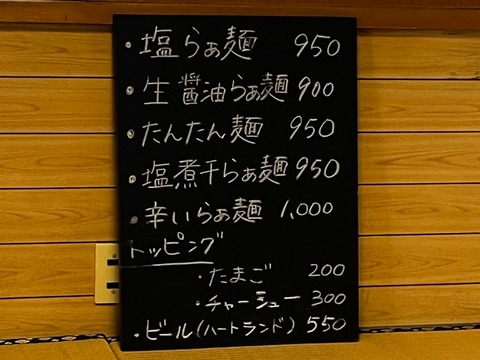 ・塩らぁ麺 950
・生醤油らぁ麺 900
・たんたん麺 950
・塩煮干らぁ麺 950
・辛いらぁ麺 1,000
トッピング
・たまご 200
・チャーシュー 300
・ビール(ハートランド) 550